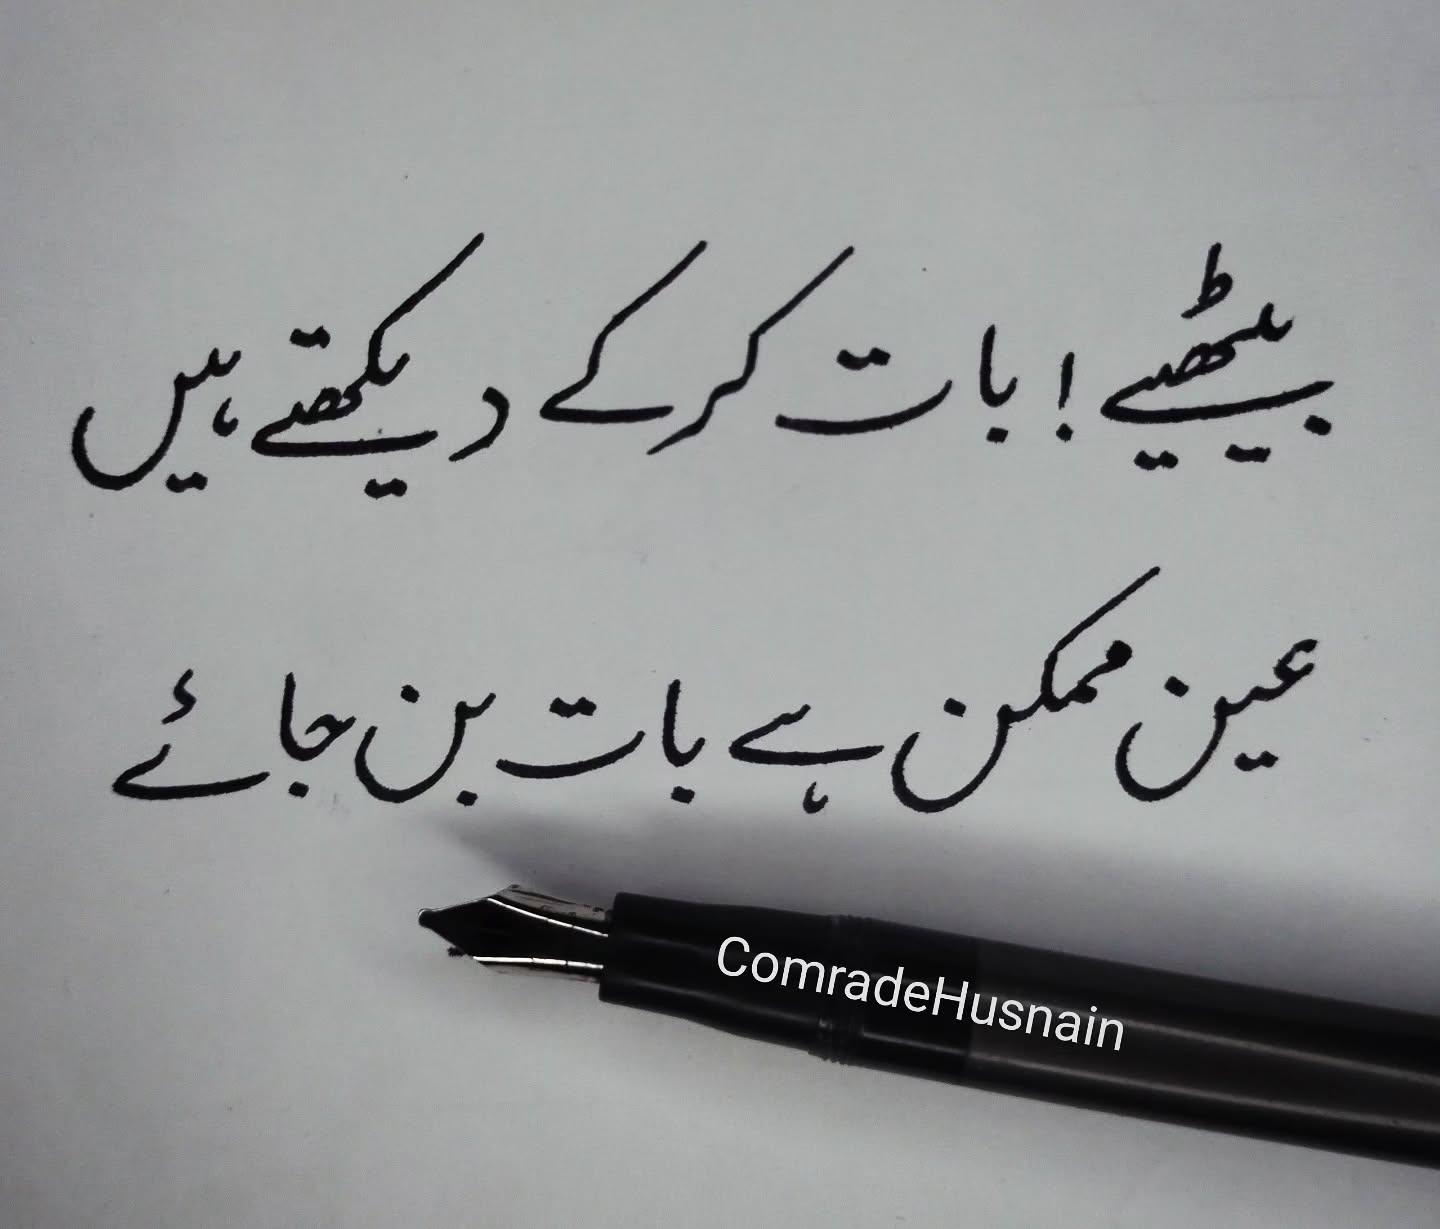 بیٹھیے ! بات کر کے دیکھتے ہیں
عین ممکن ہے بات بن جائے
ComradeHusnain